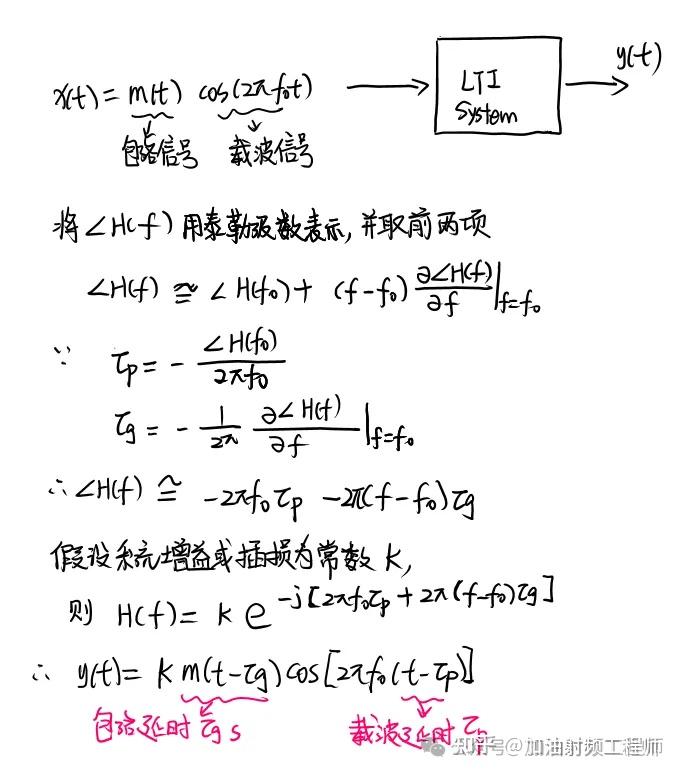 x(t) = m(t) cos(2πf₀t) LTI System y(t)
包络信号 载波信号
将∠H(f)用泰勒级数表示,并取前两项
∠H(f) ≅ ∠H(f₀) + (f-f₀) ∂∠H(f)/∂f |f=f₀
∵ τp = - ∠H(f₀)/2πf₀
τg = - 1/2π ∂∠H(f)/∂f |f=f₀
∴ ∠H(f) ≅ -2πf₀τp - 2π(f-f₀)τg
假设系统增益或插损为常数K,
则 H(f) = K e^-j[2πf₀τp + 2π(f-f₀)τg]
∴ y(t) = K m(t-τg) cos[2πf₀(t-τp)]
包络延时 τg s 载波延时 τp
知乎 @加油射频工程师